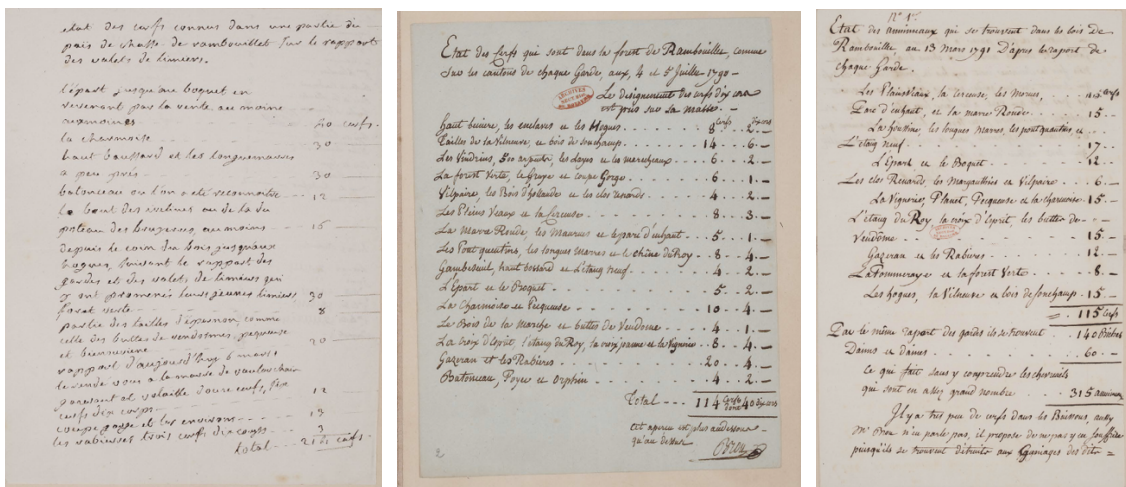 etat des cerfs connus dans une partie du
pais de chasse de rambouillet sur le rapport
des valets de limiers.
l'épart jusqu'au boquet en
revenant par la vente au moine
20 cerfs.
la charmoise
30
haut boussard et les longuemarres
a peu près
30
ou l'on a eté reconnoitre
12
le bout des au de la du
poteau des bruyeres, au moins
depuis le coin du bois jusqu'aux
hogues, suivant le rapport des
gardes et des valets de limiers qui
y ont promené leurs jeunes limiers,
30
foret verte
8
partie des tailles d'épernon, comme
celle des buttes de vendosmes, pequeuse
et
20
rapport d'aujourd'huy 6 mars
le rendé vous a la marre de
cerfs dix corps
12
coupe gorge et les environs
13
les rabiesses trois cerfs dix corps
3
total
cerfs.
Etat des Cerfs qui sont dans la forest de Rambouillet, comme
Sur les cantons de chaque Garde, aux, 4 et 5 Juillet 1790
ARCHIVES
Le designement des cerfs dix cors
est pris sur la masse.
Cerfs dix cors
haut buiere, les enclaves et les hogues 8 2
Tailles de la Vilneuve, et bois de souchamp 14 6
Les Vindrins, 500 arpents, les Layes et les marechaux 6 2
La forest Verte, le Gruye et Coupe Gorge 6 1
Vilpaire, les Bois d'hollande et les clos renards 4 2
Les Plains Vaux et la Cerceuse 8 3
La Mare Ronde, les Maurues et le parc d'enhaut 5 1
Les Pont quentons, les longues marres et le chêne du Roy 8 4
Gambiseuil, haut bossard et L'étang neuf 4 2
L'Epart et le Boquet 5 2
La Charmoise et Pecqueuse 10 4
Le Bois de la Marche et buttes de Vendome 4 1
La croix d'Esprit, l'étang du Roy, la croix jaune et le Vignier 8 4
Gazeran et les Rabieres 20 4
Batonceau, Poyer et Orphin 4 2
Total 114 Cerfs 40 dix cors
cet aperçu est plus audessous
qu'au dessus.
2
N° 1er
Etat des animaux qui se trouvent dans les bois de
Rambouillet au 13 Mars 1791 D'apres le raport de
chaque Garde.
Les Plainvaux, la Cerceuse, les 15 Cerfs
Parc d'enhaut, et la marre Ronde 15
La houssine, les longues Marres, les pont quentons, et
L'étang neuf 17
L'épart et le Boquet 12
Les clos Renards, les Margauthiers et Vilpaire 6
La Vignerie, Planet, Pecqueuse et la charmoise 15
L'étang du Roy la croix d'esprit, les buttes de
Vendôme 15
Gazeran et les Rabieres 12
La Pommeraye et la forest Verte 8
Les hogues, la Vilneuve et bois de sonchamp 15
115 Cerfs
Par le même raport des gardes il se trouvent 140 Biches
Daims et daines 60
Ce qui fait sans y comprendre les chevreuils
qui sont en assez grand nombre 315 animaux
Il y a très peu de cerfs dans les Buissons, aussy
Mr n'en parle pas, il propose de ne pas y en souffrir
puisqu'ils se trouvent détruits aux Gagniages des